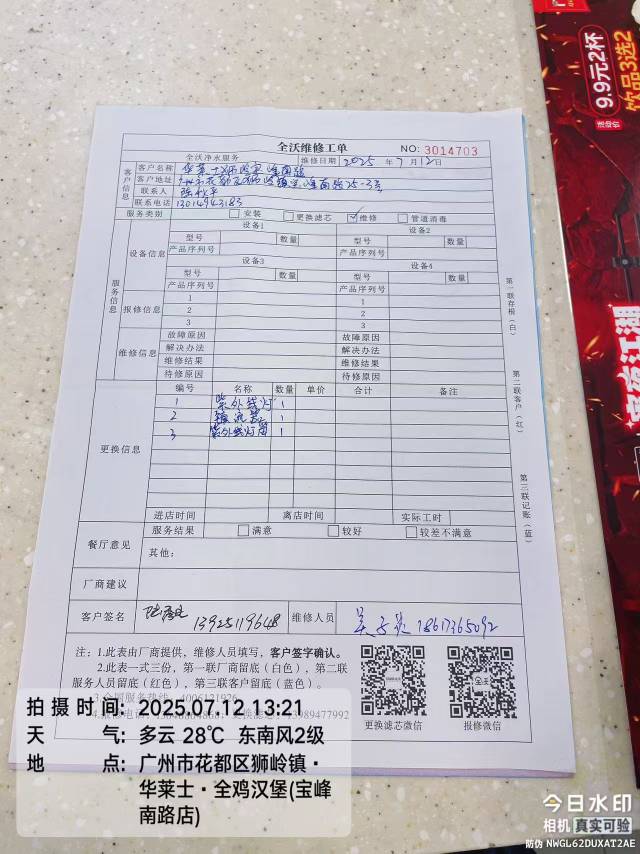 全沃维修工单
全沃净水服务 维修日期 2025 年 7 月 12 日
NO: 3014703
客户信息
客户名称
客户地址
联系人
联系电话 13014943183
服务类别 安装 更换滤芯 ✓维修 管道消毒
服务信息
设备信息
设备1 设备2
型号 数量 型号 数量
产品序列号 产品序列号
设备3 设备4
型号 数量 型号 数量
产品序列号 产品序列号
报修信息
1 1
2 2
3 3
维修信息
故障原因 故障原因
解决办法 解决办法
维修结果 维修结果
待修原因 待修原因
更换信息
编号 名称 数量 单价 合计 备注
1 紫外线灯 1
2 镇流器 1
3 紫外线灯管 1
进店时间 离店时间 实际工时
餐厅意见
服务结果 满意 较好 较差不满意
其他:
厂商建议
客户签名 13925119648 维修人员 18617365092
注: 1.此表由厂商提供, 维修人员填写, 客户签字确认。
2.此表一式三份, 第一联厂商留底(白色), 第二联
服务人员留底(红色), 第三联客户留底(蓝色)。
更换滤芯微信 报修微信
第一联存根(白)
第二联客户(红)
第三联记账(蓝)
9.9元2杯
饮品3选2
拍摄时间: 2025.07.12 13:21
天气: 多云 28℃ 东南风2级
地点: 广州市花都区狮岭镇·
华莱士·全鸡汉堡(宝峰
南路店)
今日水印
相机 真实可验
防伪 NWGL62DUXAT2AE